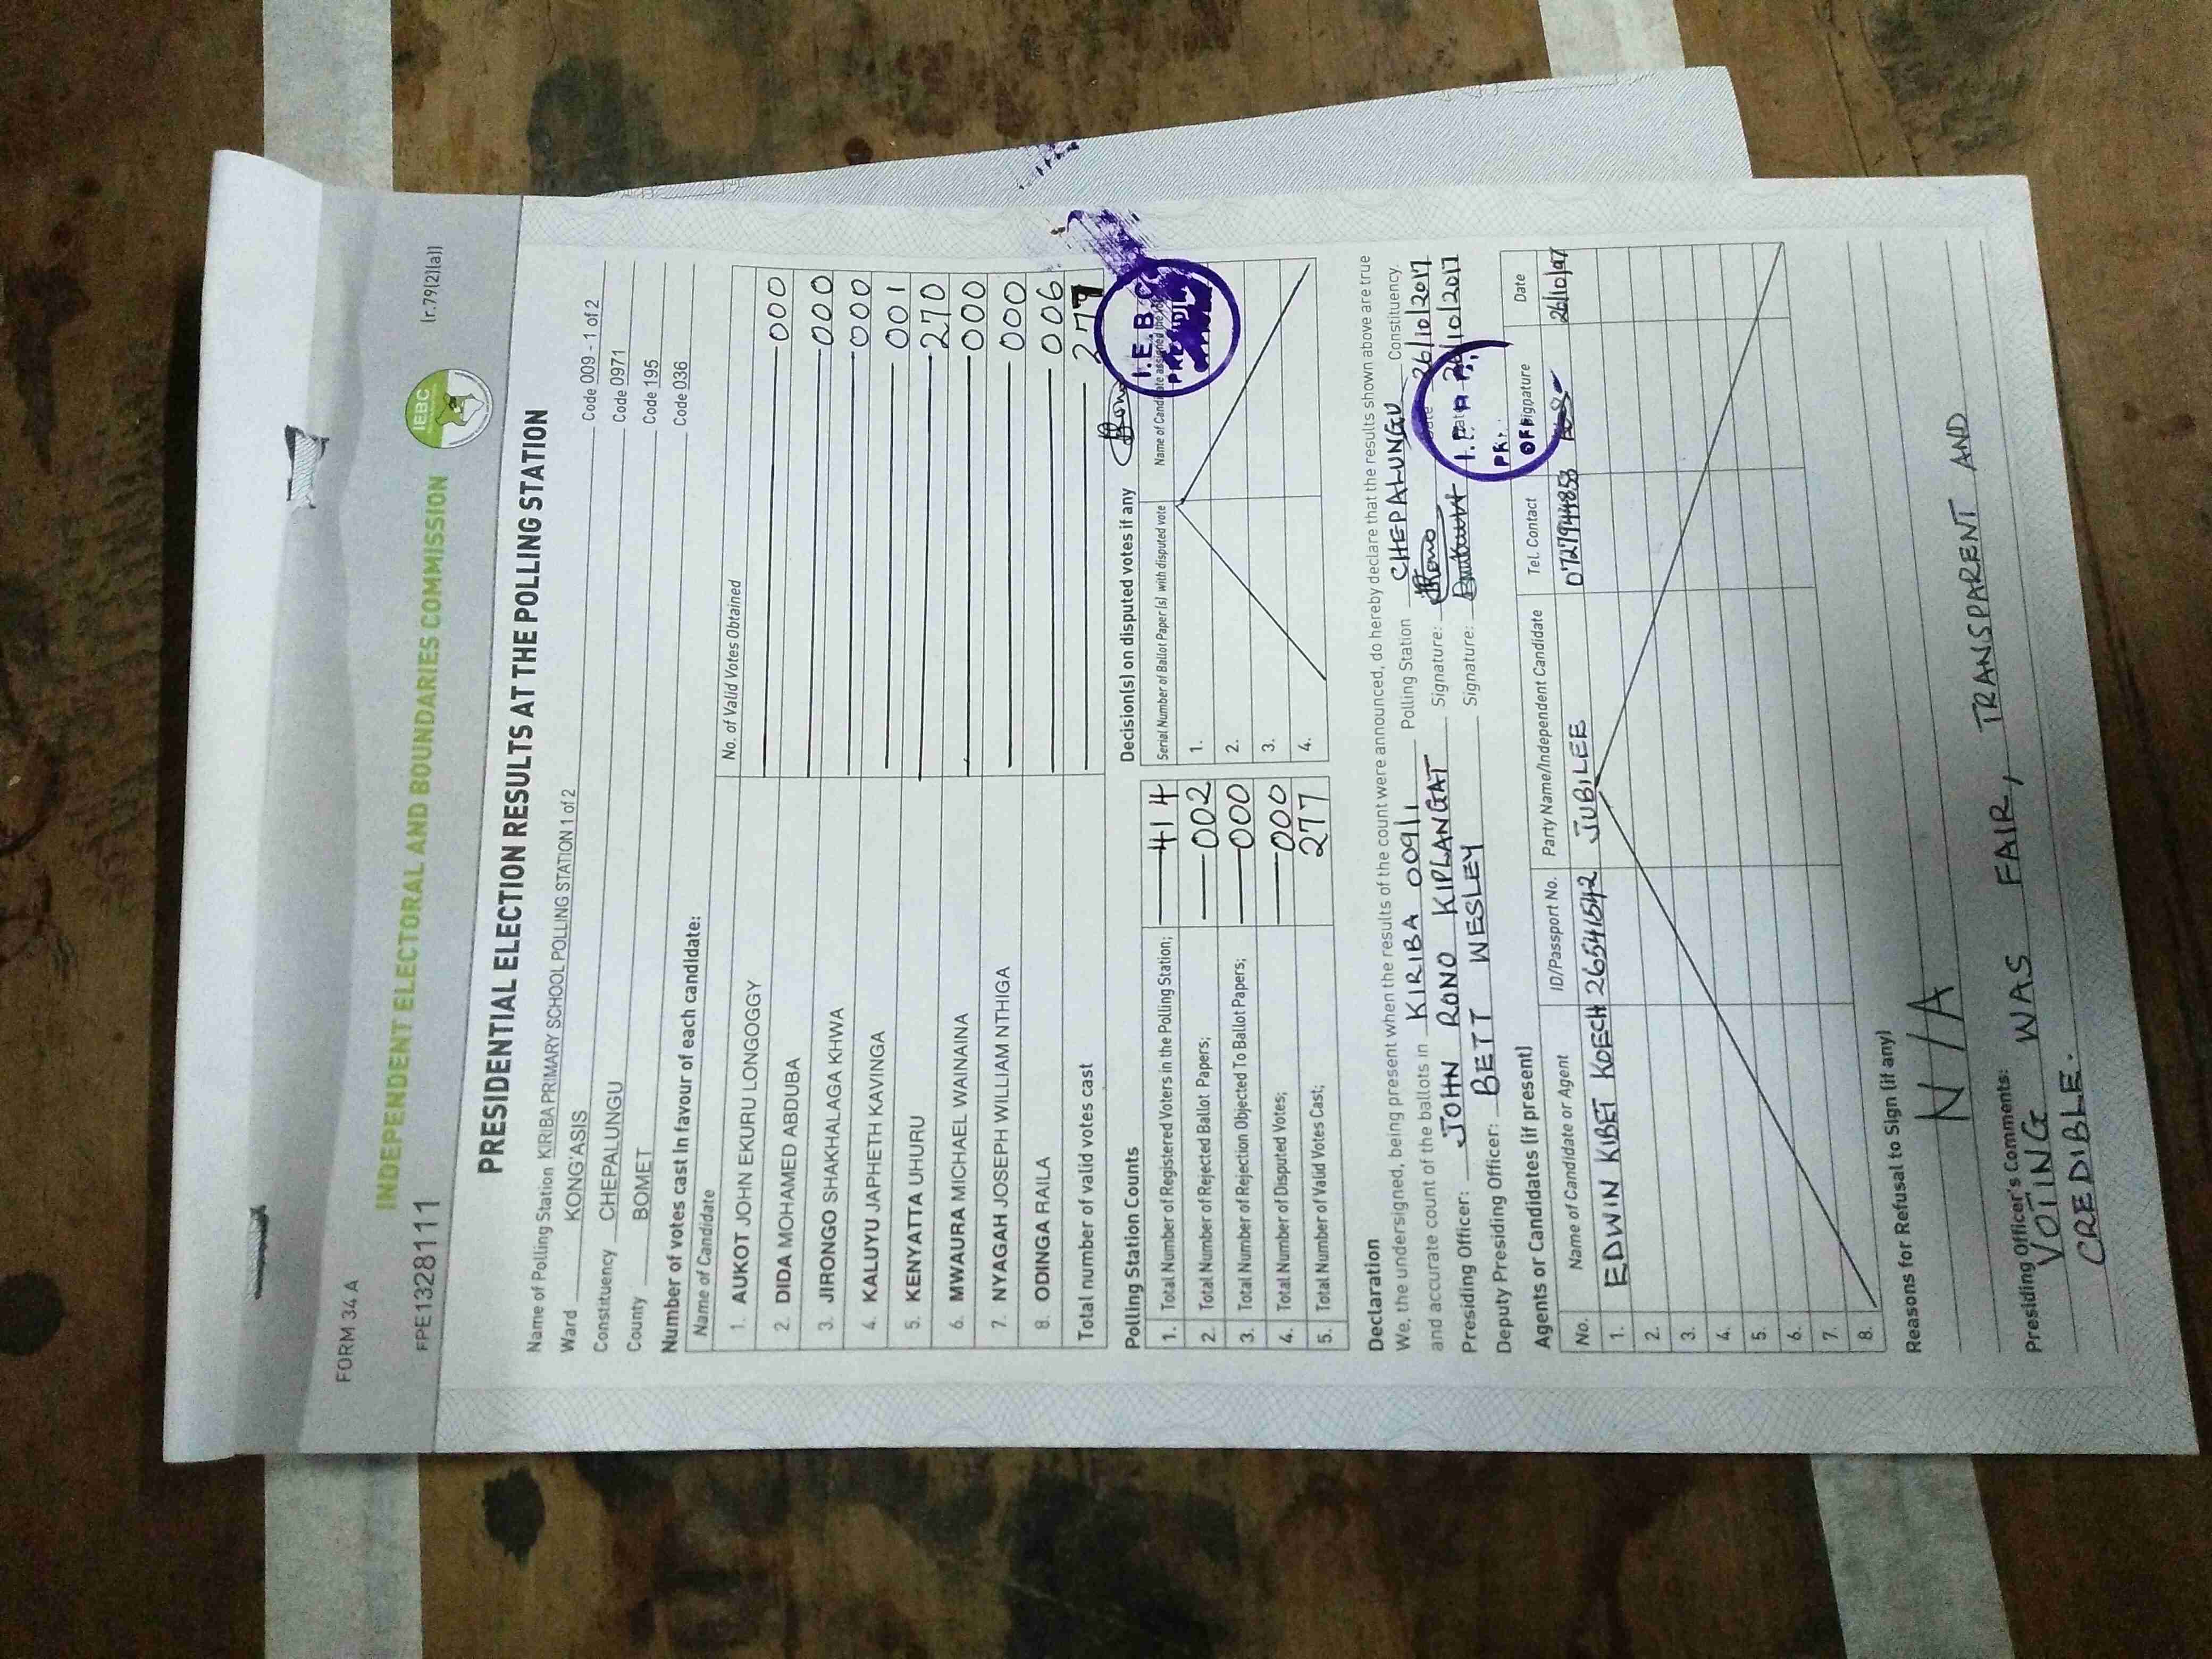 FORM 34 A
(r.79(2)(a))
INDEPENDENT ELECTORAL AND BOUNDARIES COMMISSION
IEBC
FPE1328111
PRESIDENTIAL ELECTION RESULTS AT THE POLLING STATION
Name of Polling Station KIRIBA PRIMARY SCHOOL POLLING STATION 1 of 2 Code 009 - 1 of 2
Ward KONG'ASIS Code 0971
Constituency CHEPALUNGU Code 195
County BOMET Code 036
Number of votes cast in favour of each candidate:
Name of Candidate No. of Valid Votes Obtained
1. AUKOT JOHN EKURU LONGOGGY 000
2. DIDA MOHAMED ABDUBA 000
3. JIRONGO SHAKHALAGA KHWA 000
4. KALUYU JAPHETH KAVINGA 001
5. KENYATTA UHURU 270
6. MWAURA MICHAEL WAINAINA 000
7. NYAGAH JOSEPH WILLIAM NTHIGA 000
8. ODINGA RAILA 006
Total number of valid votes cast 277
Polling Station Counts
1. Total Number of Registered Voters in the Polling Station; 414
2. Total Number of Rejected Ballot Papers; 002
3. Total Number of Rejection Objected To Ballot Papers; 000
4. Total Number of Disputed Votes; 000
5. Total Number of Valid Votes Cast; 277
Decision(s) on disputed votes if any
Serial Number of Ballot Paper(s) with disputed vote Name of Candidate assigned the
1.
2.
3.
4.
I.E.B.C
Declaration
We, the undersigned, being present when the results of the count were announced, do hereby declare that the results shown above are true
and accurate count of the ballots in KIRIBA 00911 Polling Station CHEPALUNGU Constituency.
Presiding Officer: JOHN RONO KIPLANGAT Signature: Rono Date 26/10/2017
Deputy Presiding Officer: BETT WESLEY Signature: 26/10/2017
Agents or Candidates (if present)
No. Name of Candidate or Agent ID/Passport No. Party Name/Independent Candidate Tel. Contact Signature Date
1. EDWIN KIBET KOECH 26541542 JUBILEE 0727944853
2.
3.
4.
5.
6.
7.
8.
Reasons for Refusal to Sign (if any)
N/A
Presiding Officer's Comments:
VOTING WAS FAIR, TRANSPARENT AND
CREDIBLE.